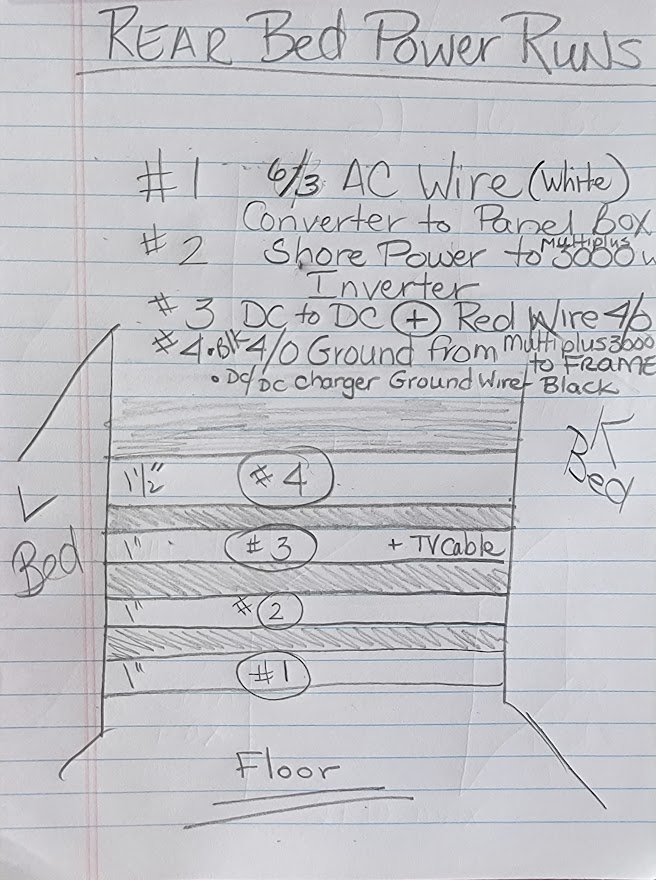 REAR Bed Power Runs
#1 6/3 AC Wire (white)
Converter to Panel box
#2 Shore Power to Multiplus 3000w
Inverter
#3 DC to DC (+) Red Wire 4/0
#4 • Blk 4/0 Ground from Multiplus 3000
to FRAME
• DC/DC charger Ground Wire Black
1½" #4
1" #3 + TV Cable
1" #2
1" #1
L Bed
R Bed
Floor